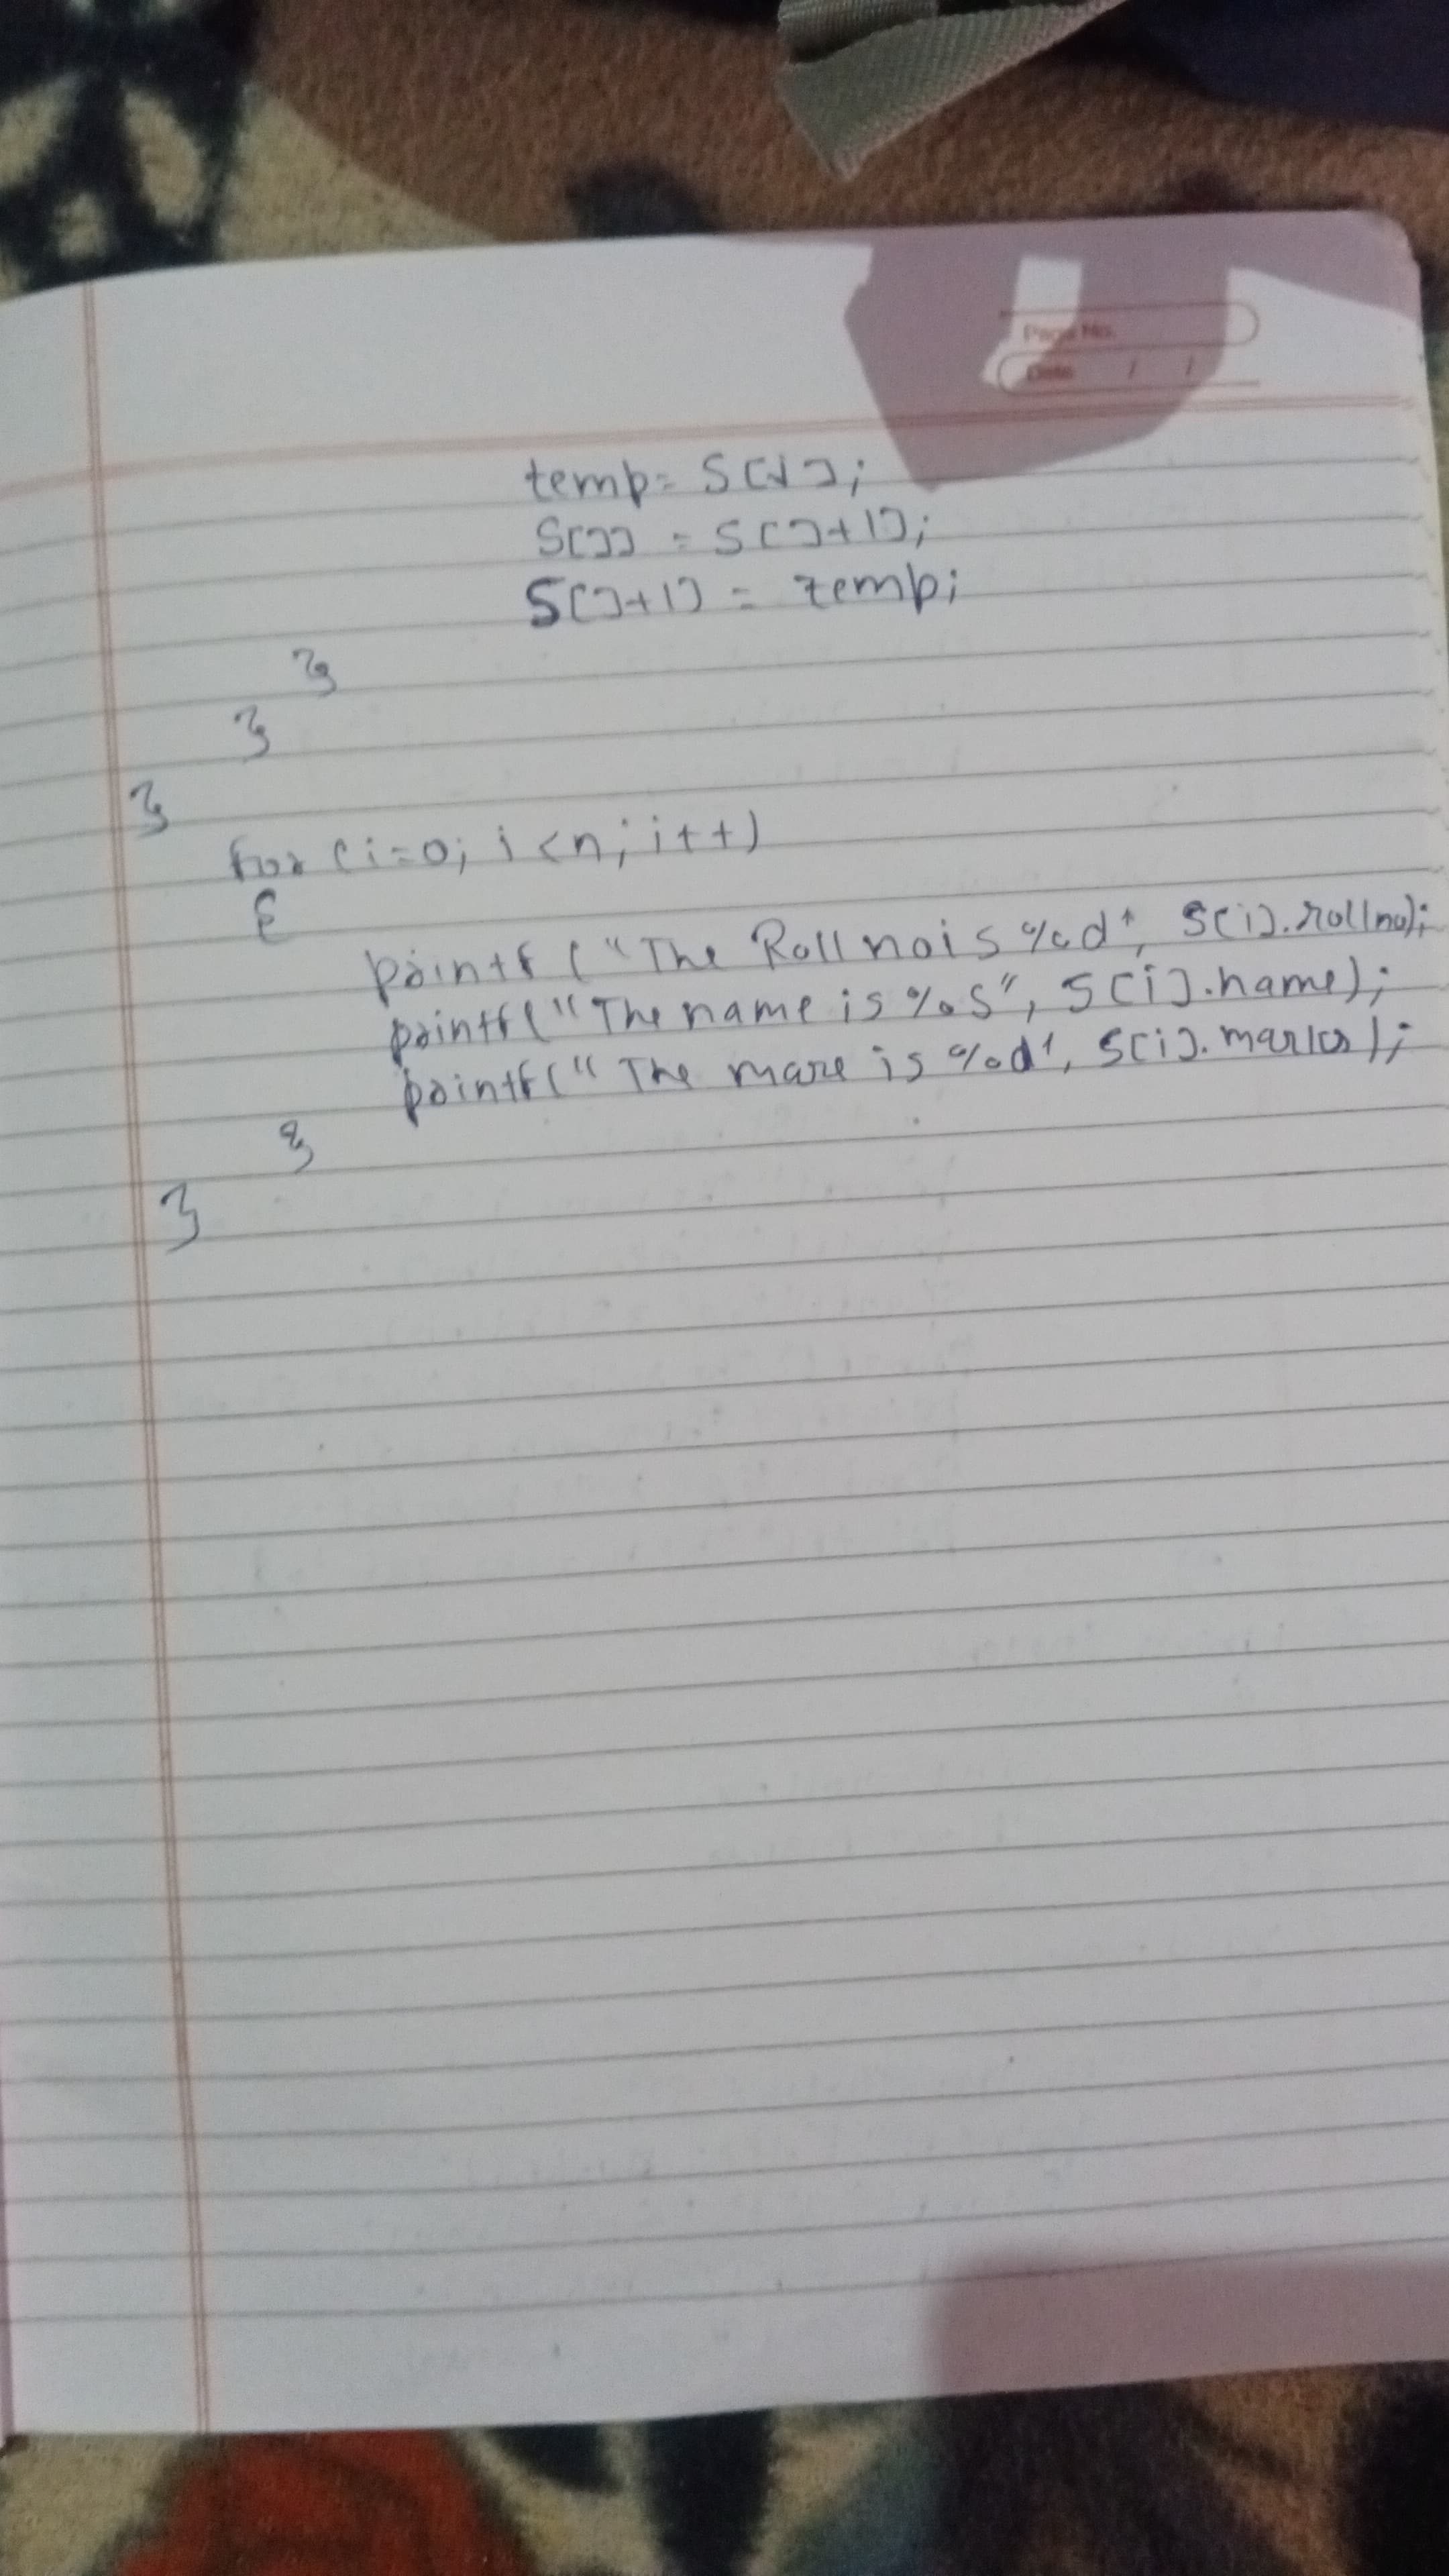 Page No.
Date / /
temp = S[J];
S[J] = S[J+1];
S[J+1] = temp;
}
}
}
for (i=0; i<n; i++)
{
printf ("The Roll no is %d", S[i].rollno);
printf("The name is %s", S[i].name);
printf("The mare is %d", S[i].marks);
}
}